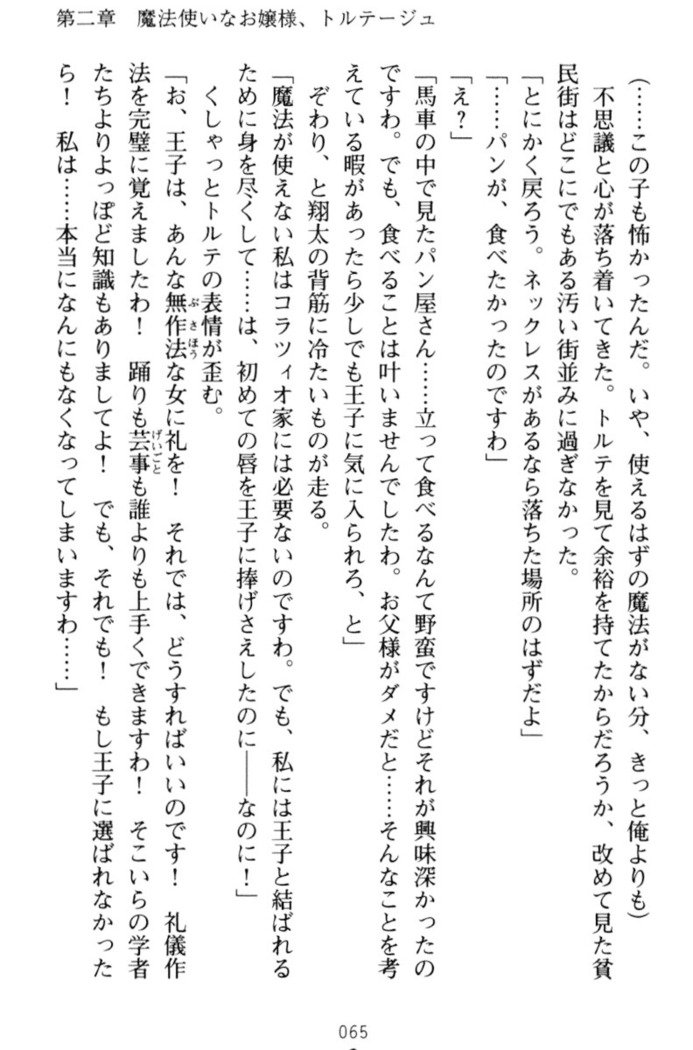 第二章　魔法使いなお嬢様、トルテージュ
（……この子も怖かったんだ。いや、使えるはずの魔法がない分、きっと俺よりも）
　不思議と心が落ち着いてきた。トルテを見て余裕を持てたからだろうか、改めて見た貧
民街はどこにでもある汚い街並みに過ぎなかった。
「とにかく戻ろう。ネックレスがあるなら落ちた場所のはずだよ」
「……パンが、食べたかったのですわ」
「え？」
「馬車の中で見たパン屋さん……立って食べるなんて野蛮ですけどそれが興味深かったの
ですわ。でも、食べることは叶いませんでしたわ。お父様がダメだと……そんなことを考
えている暇があったら少しでも王子に気に入られろ、と」
　ぞわり、と翔太の背筋に冷たいものが走る。
「魔法が使えない私はコラツィオ家には必要ないのですわ。でも、私には王子と結ばれる
ために身を尽くして……は、初めての唇を王子に捧げさえしたのに――なのに！」
　くしゃっとトルテの表情が歪む。
「お、王子は、あんな無作法な女に礼を！　それでは、どうすればいいのです！　礼儀作
ぶさほう
法を完璧に覚えましたわ！　踊りも芸事も誰よりも上手くできますわ！　そこいらの学者
げいごと
たちよりよっぽど知識もありましてよ！　でも、それでも！　もし王子に選ばれなかった
ら！　私は……本当になんにもなくなってしまいますわ……」
065